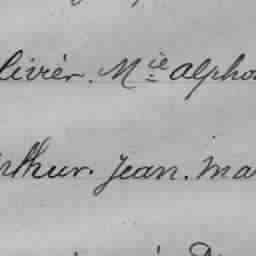 livier. Mie alpho
rthur. Jean. Ma